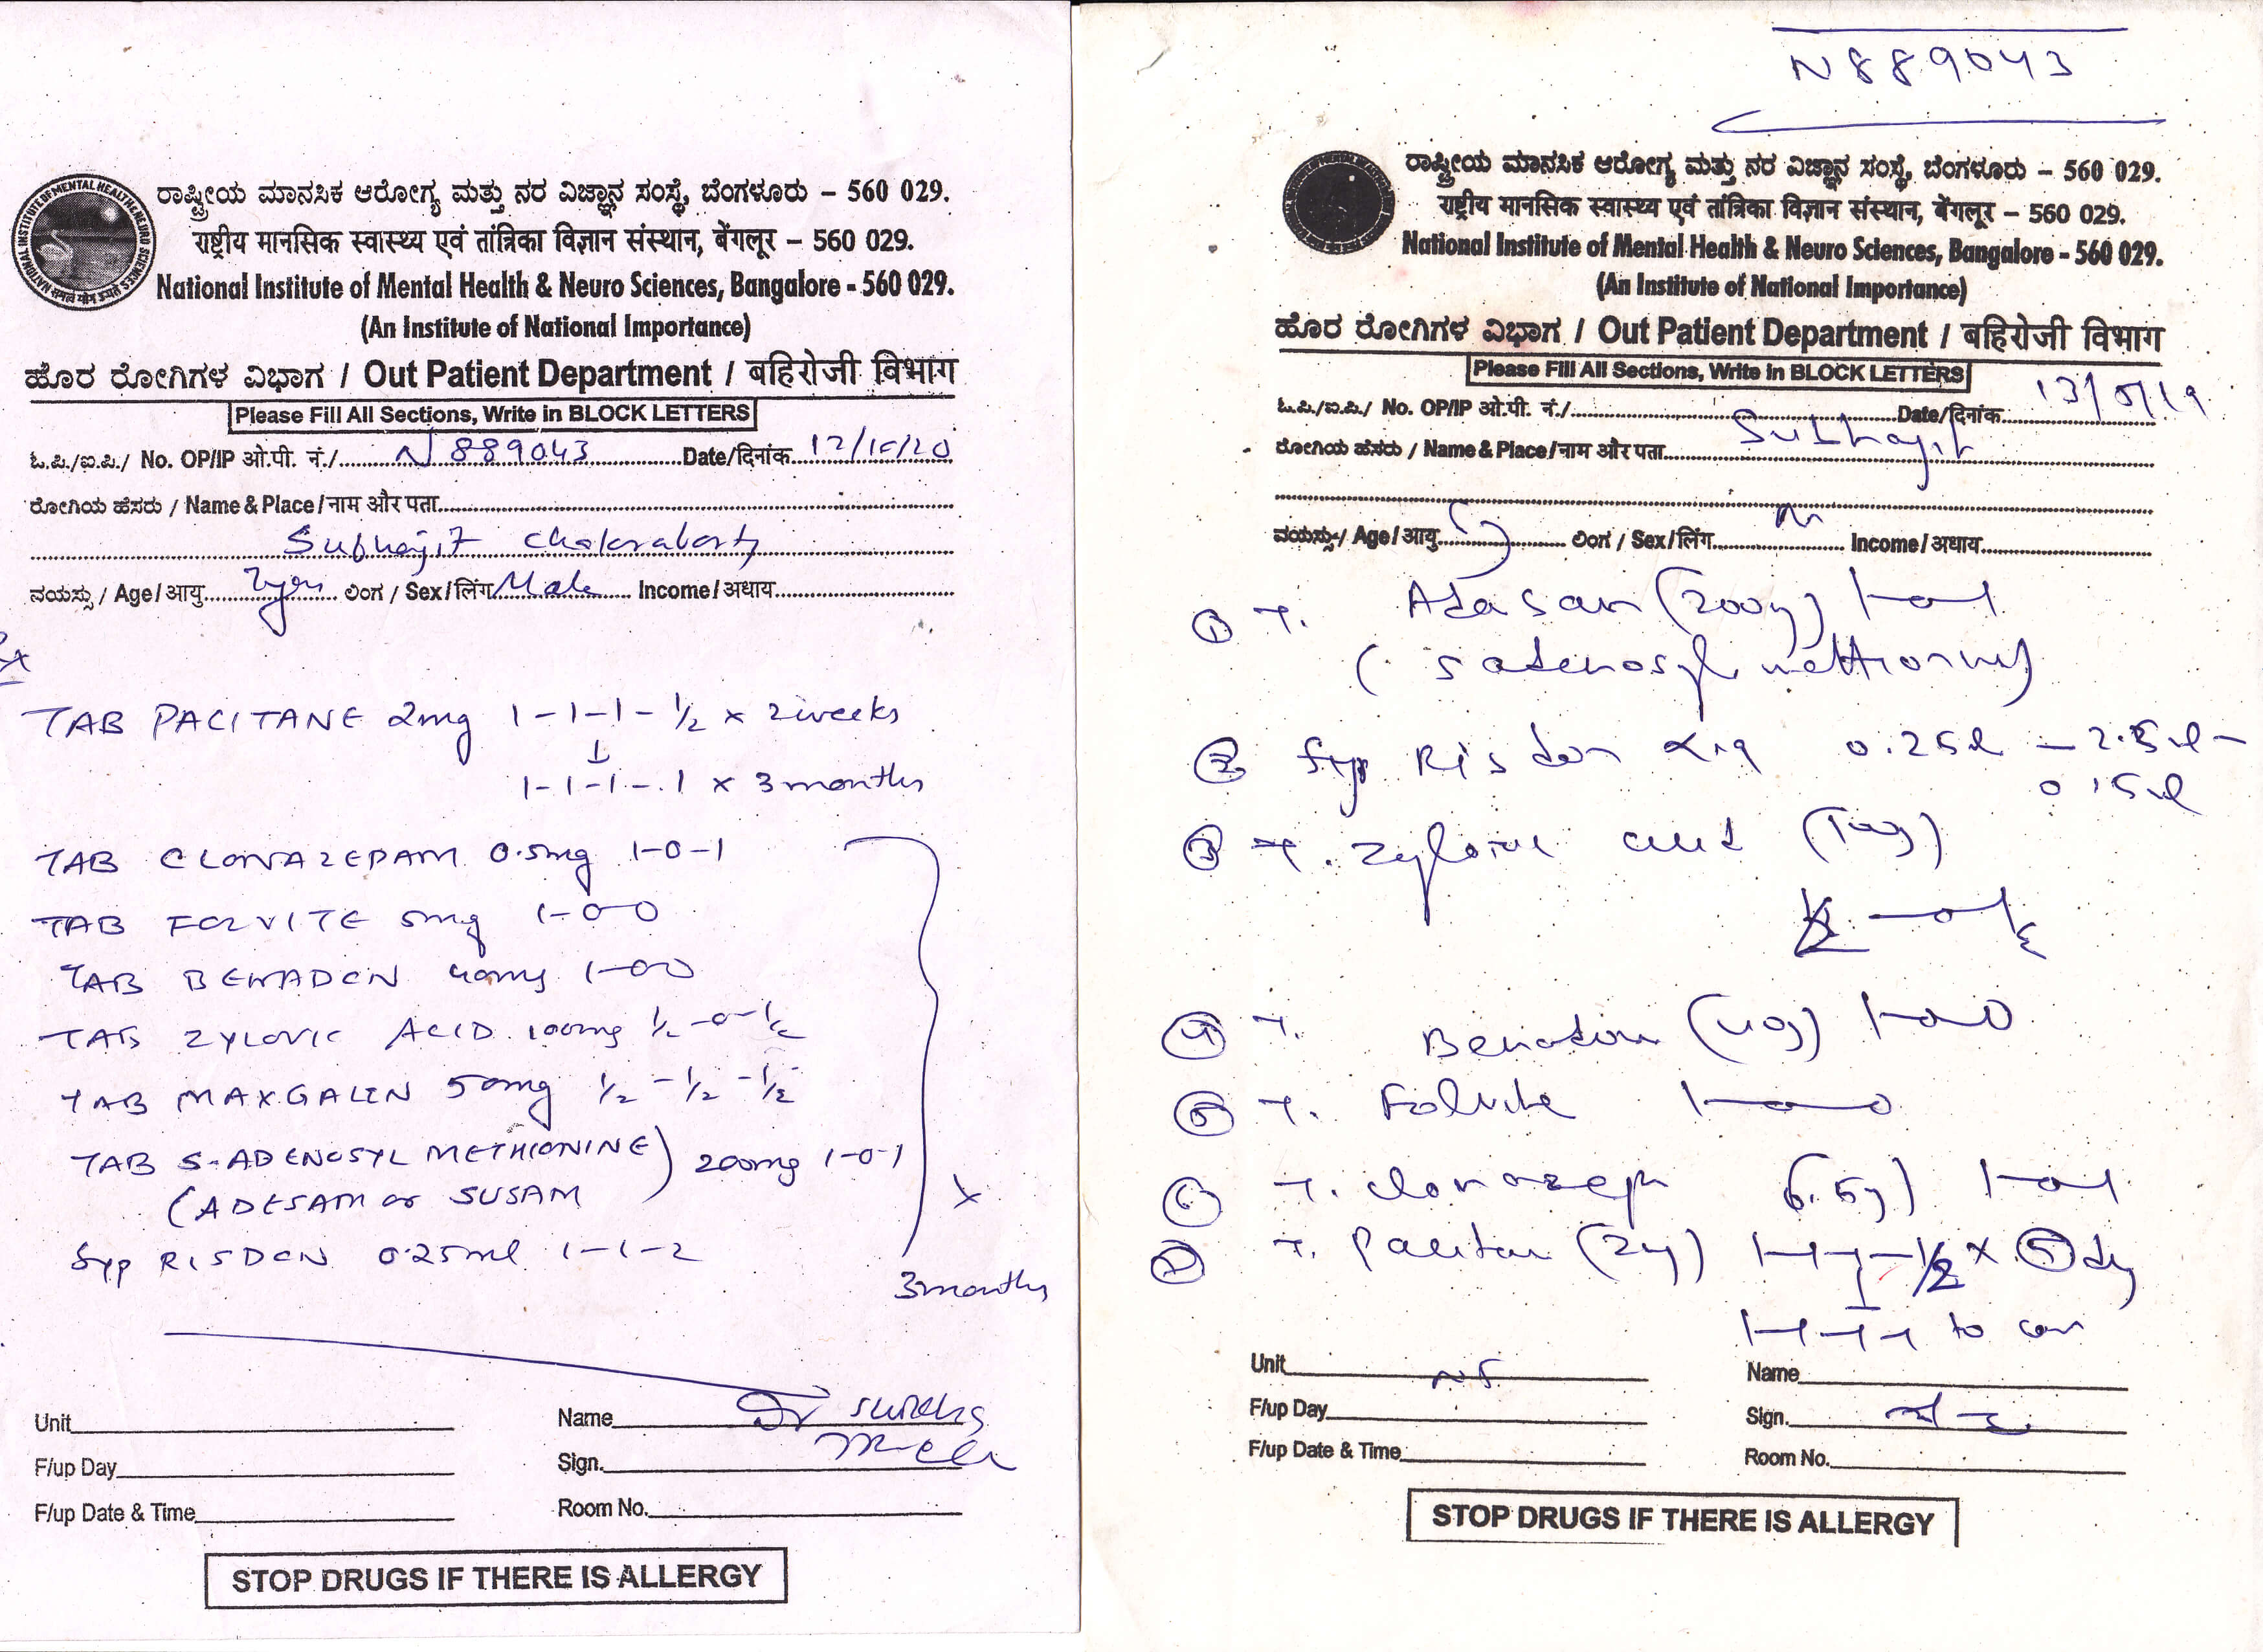 ರಾಷ್ಟ್ರೀಯ ಮಾನಸಿಕ ಆರೋಗ್ಯ ಮತ್ತು ನರ ವಿಜ್ಞಾನ ಸಂಸ್ಥೆ, ಬೆಂಗಳೂರು – 560 029.
राष्ट्रीय मानसिक स्वास्थ्य एवं तांत्रिका विज्ञान संस्थान, बेंगलूर – 560 029.
National Institute of Mental Health & Neuro Sciences, Bangalore - 560 029.
(An Institute of National Importance)
ಹೊರ ರೋಗಿಗಳ ವಿಭಾಗ / Out Patient Department / बहिरोजी विभाग
Please Fill All Sections, Write in BLOCK LETTERS
ಓ.ಪಿ./ಐ.ಪಿ./ No. OP/IP ओ.पी. नं./ N 889043 Date/दिनांक 12/10/20
ರೋಗಿಯ ಹೆಸರು / Name & Place/नाम और पता
Subhajit Chakraborty
ವಯಸ್ಸು / Age/आयु ಲಿಂಗ / Sex/लिंग Male Income/अधाय
Rx
TAB PACITANE 2mg 1-1-1-½ x 2weeks
↓
1-1-1-1 x 3months
TAB CLONAZEPAM 0.5mg 1-0-1
TAB FOLVITE 5mg 1-0-0
TAB BENADON 40mg 1-0-0
TAB ZYLORIC ACID 100mg ½-0-½
TAB MAXGALIN 50mg ½-½-½
TAB S-ADENOSYL METHIONINE) 200mg 1-0-1
(ADESAM or SUSAM
Syp RISDON 0.25ml 1-1-2
x
3months
Unit Name Dr
F/up Day Sign.
F/up Date & Time Room No.
STOP DRUGS IF THERE IS ALLERGY
N889043
ರಾಷ್ಟ್ರೀಯ ಮಾನಸಿಕ ಆರೋಗ್ಯ ಮತ್ತು ನರ ವಿಜ್ಞಾನ ಸಂಸ್ಥೆ, ಬೆಂಗಳೂರು – 560 029.
राष्ट्रीय मानसिक स्वास्थ्य एवं तांत्रिका विज्ञान संस्थान, बेंगलूर – 560 029.
National Institute of Mental Health & Neuro Sciences, Bangalore - 560 029.
(An Institute of National Importance)
ಹೊರ ರೋಗಿಗಳ ವಿಭಾಗ / Out Patient Department / बहिरोजी विभाग
Please Fill All Sections, Write in BLOCK LETTERS
ಓ.ಪಿ./ಐ.ಪಿ./ No. OP/IP ओ.पी. नं./ Date/दिनांक
ರೋಗಿಯ ಹೆಸರು / Name & Place/नाम और पता Subhajit
ವಯಸ್ಸು/ Age/आयु ಲಿಂಗ / Sex/लिंग m Income/अधाय
① T. Adesam (200mg) 1-0-1
(S adenosyl methionine)
② Syp Risdon
③ T. Zyloric acid
½-0-½
④ T. Benadon (40mg) 1-0-0
⑤ T. Folvite 1-0-0
⑥ T. clonazepam (0.5mg) 1-0-1
⑦ T. Pacitane (2mg) 1-1-1-½ x ⑤ day
1-1-1-1 to con
Unit Name
F/up Day Sign.
F/up Date & Time Room No.
STOP DRUGS IF THERE IS ALLERGY